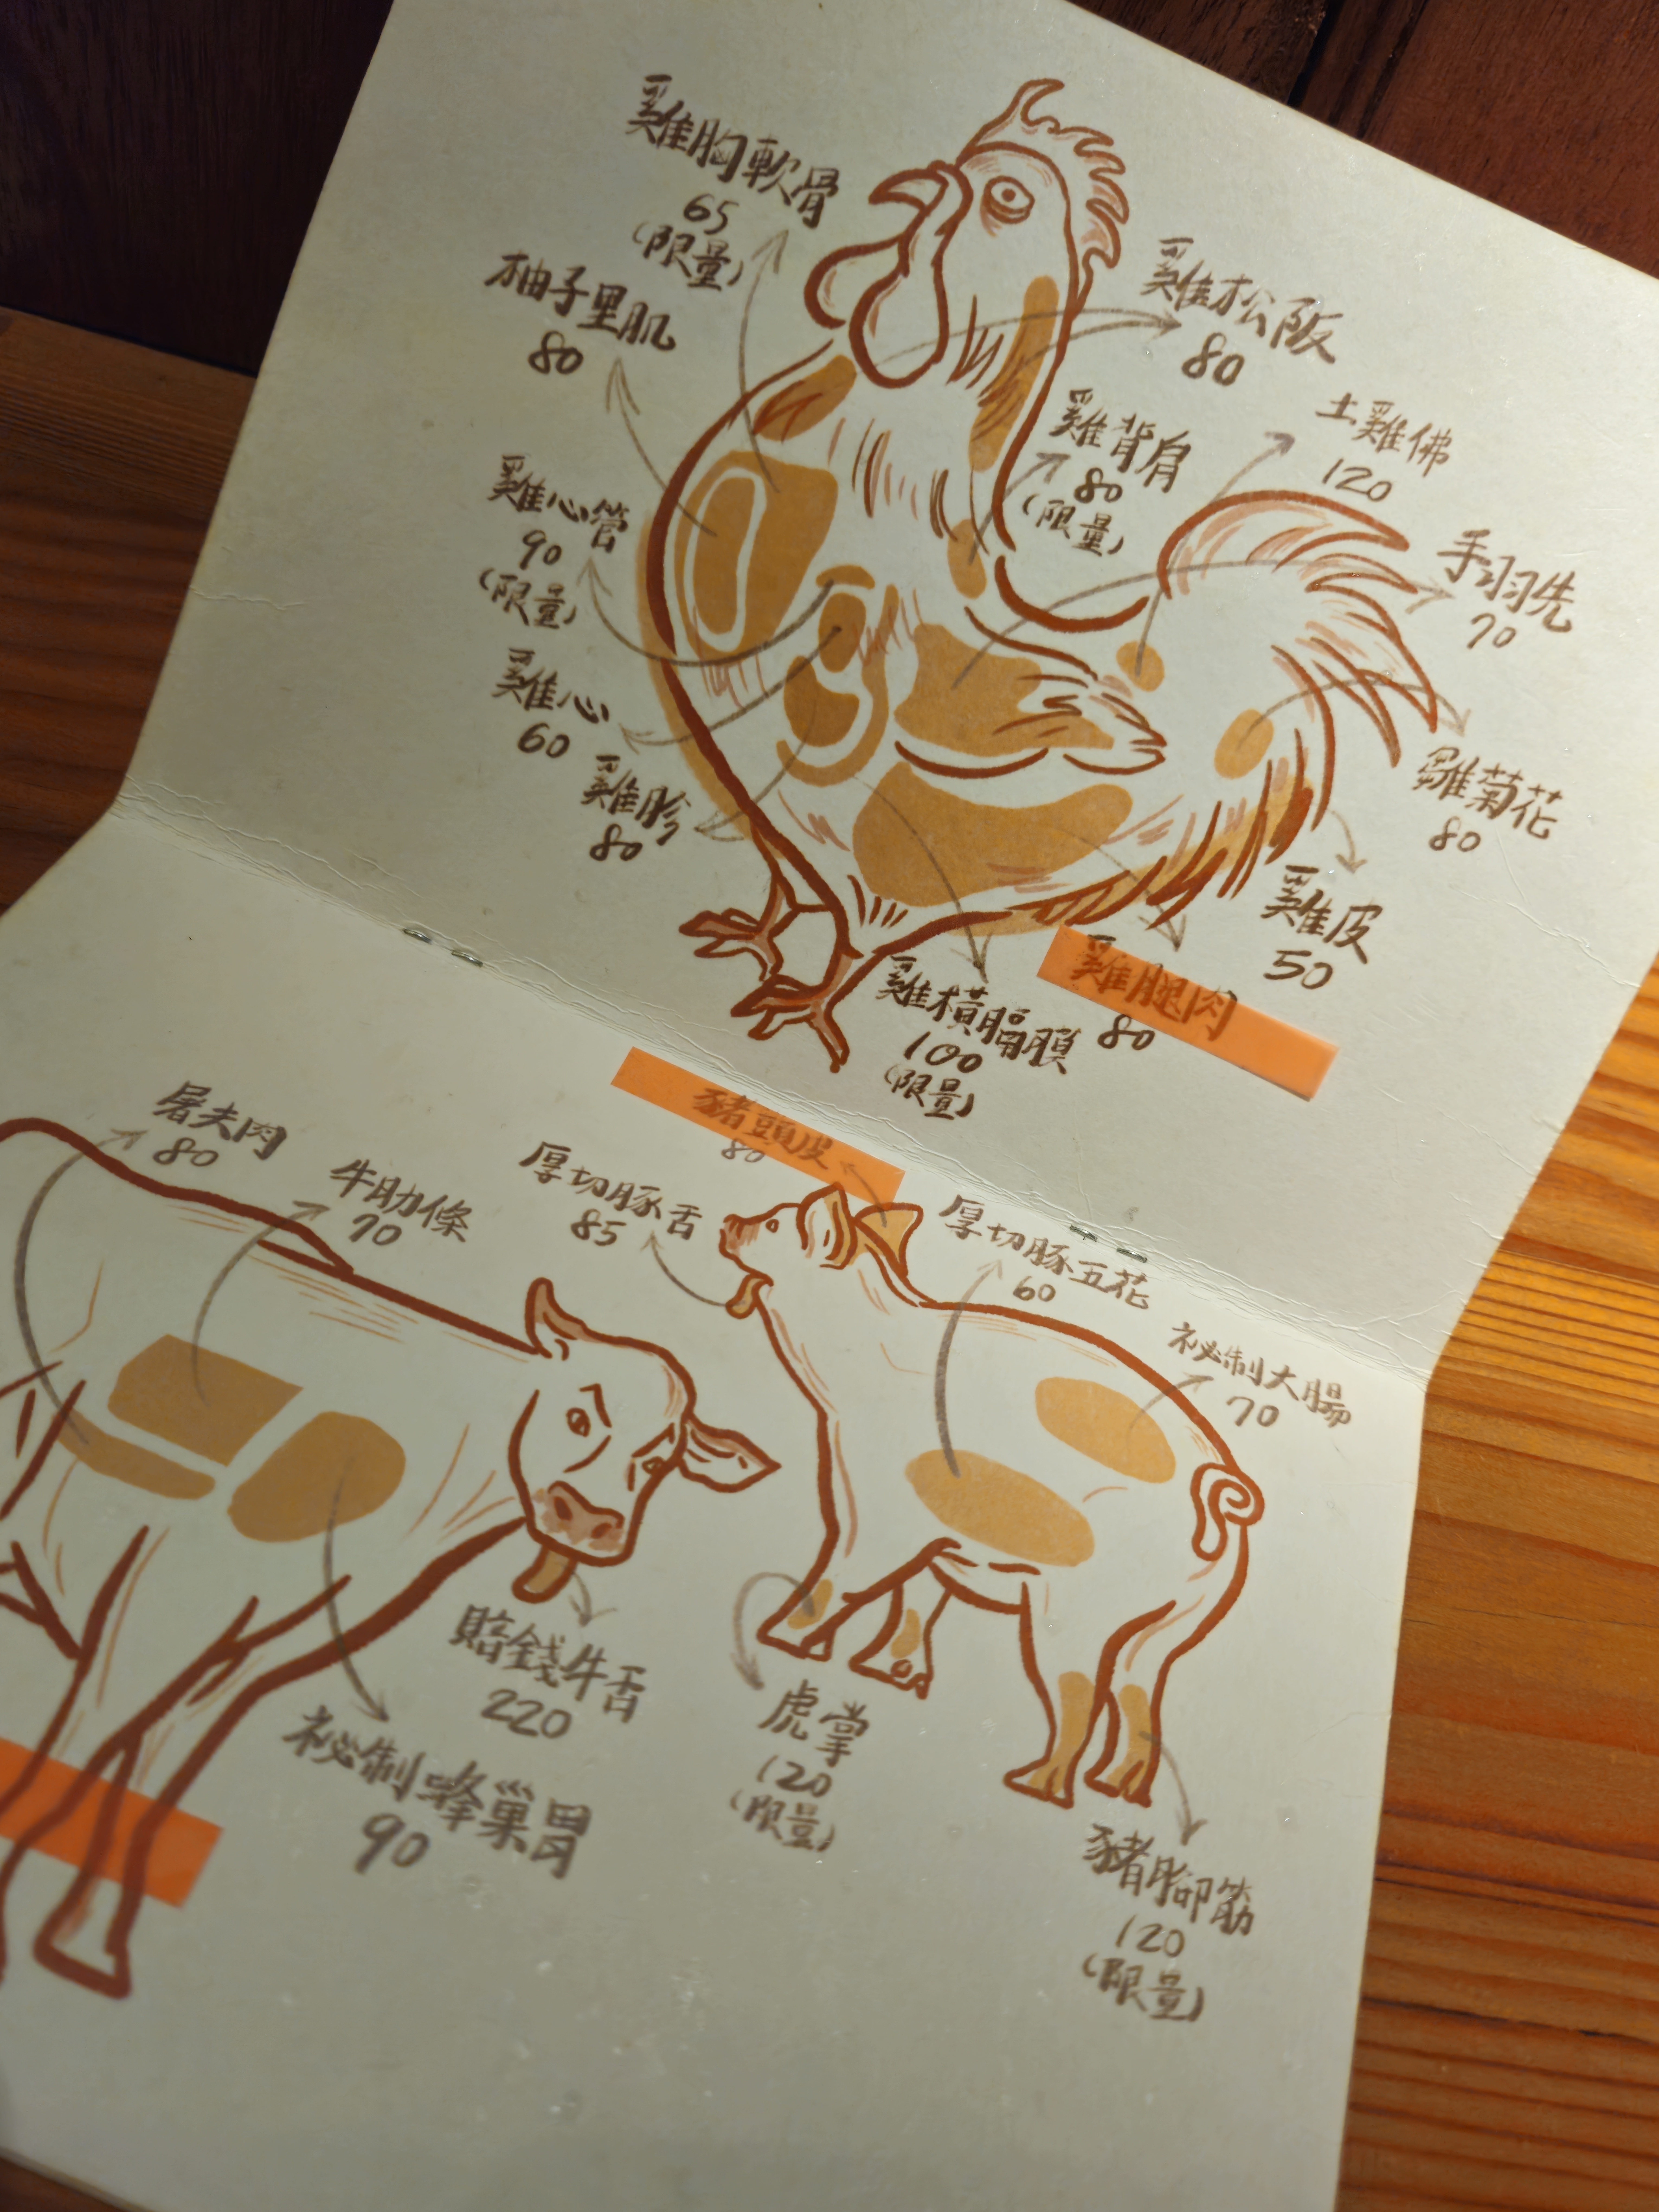 雞胸軟骨
65
(限量)
柚子里肌
80
雞心管
90
(限量)
雞心
60
雞胗
80
雞松阪
80
雞背肩
80
(限量)
土雞佛
120
手羽先
70
雞菊花
80
雞皮
50
雞腿肉
80
雞橫膈膜
100
(限量)
屠夫肉
80
牛肋條
70
賠錢牛舌
220
祕制蜂巢胃
90
豬頭皮
80
厚切豚舌
85
厚切豚五花
60
祕制大腸
70
虎掌
120
(限量)
豬腳筋
120
(限量)